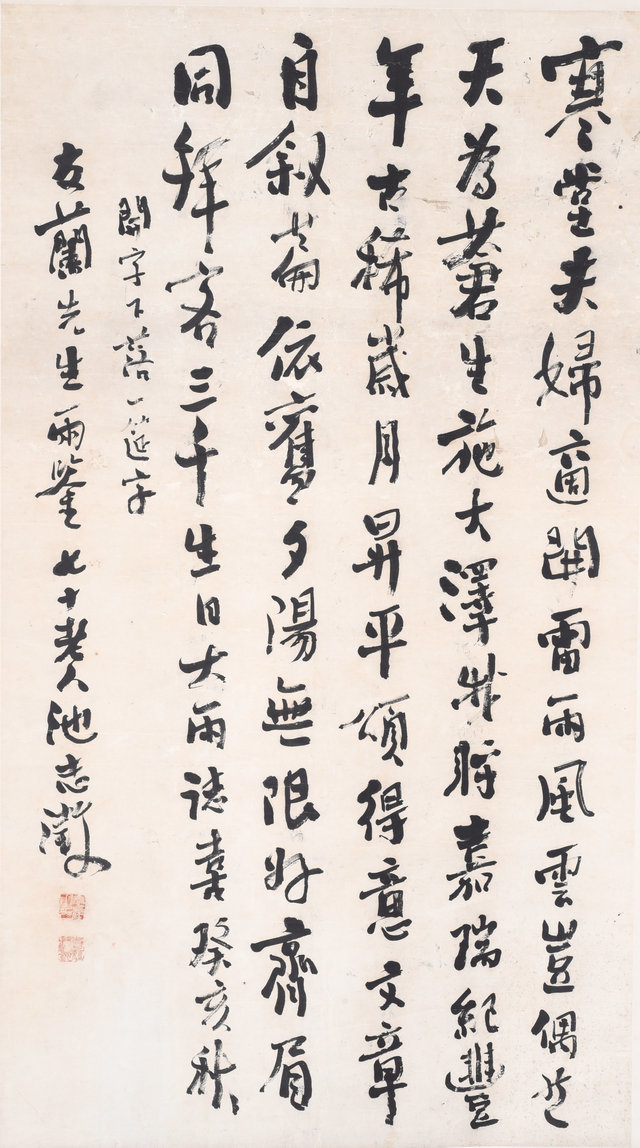 寒堂夫婦適開雷雨風雲豈偶然
天為蒼生施大澤將嘉瑞紀豐
年古稀歲月昇平頌得意文章
自敘篇依舊夕陽無限好齊眉
同拜客三千生日大雨誌喜癸亥秋
開字下落一筵字
友蘭先生鑒七十老人池志澂